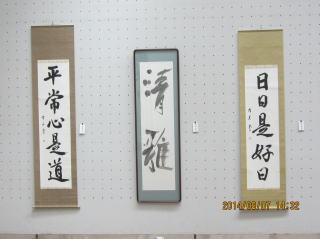 平常心是道
清雅
日日是好日
2014/06/07 10:32